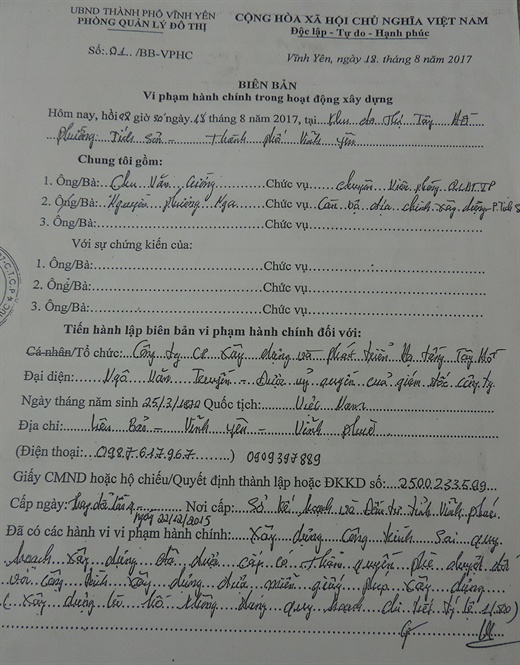 UBND THÀNH PHỐ VĨNH YÊN
PHÒNG QUẢN LÝ ĐÔ THỊ
CỘNG HÒA XÃ HỘI CHỦ NGHĨA VIỆT NAM
Độc lập - Tự do - Hạnh phúc
Số: 01 /BB-VPHC
Vĩnh Yên, ngày 18 tháng 8 năm 2017
BIÊN BẢN
Vi phạm hành chính trong hoạt động xây dựng
Hôm nay, hồi giờ ngày 18 tháng 8 năm 2017, tại Khu đô Thị Tây Hồ
phường: Tích Sơn - Thành phố Vĩnh Yên
Chung tôi gồm:
1. Ông/Bà: Chu Văn Cường Chức vụ chuyên viên phòng QLĐT.VY
2. Ông/Bà: Nguyễn phương Nga Chức vụ: Cán bộ địa chính xây dựng P. Tích S
3. Ông/Bà: Chức vụ
Với sự chứng kiến của:
1. Ông/Bà: Chức vụ:
2. Ông/Bà: Chức vụ:
3. Ông/Bà: Chức vụ
Tiến hành lập biên bản vi phạm hành chính đối với:
Cá nhân/Tổ chức: Công ty CP Xây dựng và phát triển Hạ tầng Tây Hồ
Đại diện: Ngô Văn - Được uỷ quyền của giám đốc công ty
Ngày tháng năm sinh 25/3/ Quốc tịch: Việt Nam
Địa chỉ: Liên Bảo - Vĩnh yên - Vĩnh phúc
(Điện thoại: 0987.617.967 ) 0909397889
Giấy CMND hoặc hộ chiếu/Quyết định thành lập hoặc ĐKKD số: 2500.233.599
Cấp ngày: lần 4 Nơi cấp: Sở kế hoạch và Đầu tư tỉnh Vĩnh phúc
ngày 22/12/2015
Đã có các hành vi vi phạm hành chính: Xây dựng công trình sai quy
hoạch xây dựng đã được cấp có thẩm quyền phê duyệt đối
với công trình xây dựng được miễn giấy phép xây dựng
( Xây dựng không đúng quy hoạch chi tiết tỷ lệ 1/500)